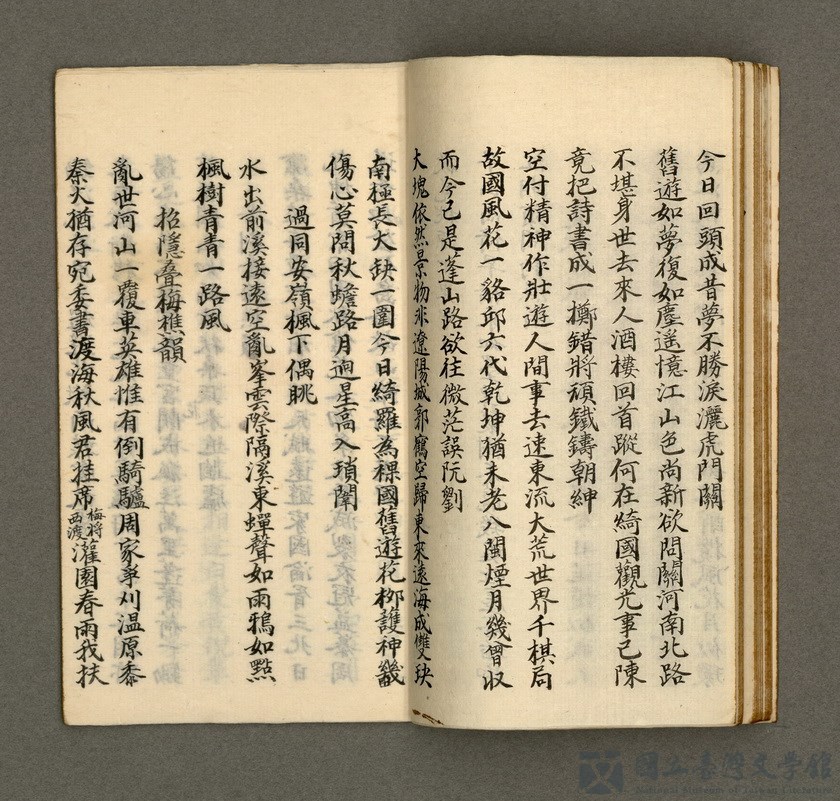 今日回頭成昔夢不勝淚灑虎門關
舊遊如夢復如塵遙憶江山色尚新欲問關河南北路
不堪身世去來人酒樓回首蹤何在綺國觀光事已陳
竟把詩書成一擲錯將頑鐵鑄朝紳
空付精神作壯遊人間事去速東流大荒世界千棋局
故國風花一貉邱六代乾坤猶未老八閩煙月幾曾收
而今已是蓬山路欲往微茫誤阮劉
大塊依然景物非遼陽城郭鶴空歸東來遠海成雙玦
南極長天缺一圍今日綺羅為裸國舊遊花柳護神畿
傷心莫問秋蟾路月迥星高入瑣闈
過同安嶺楓下偶眺
水出前溪接遠空亂峯雲際隔溪東蟬聲如雨鴉如點
楓樹青青一路風
招隱疊梅樵韻
亂世河山一覆車英雄惟有倒騎驢周家爭刈溫原黍
秦火猶存宛委書渡海秋風君挂席梅將西渡灌園春雨我扶
國立臺灣文學館
National Museum of Taiwan Literature